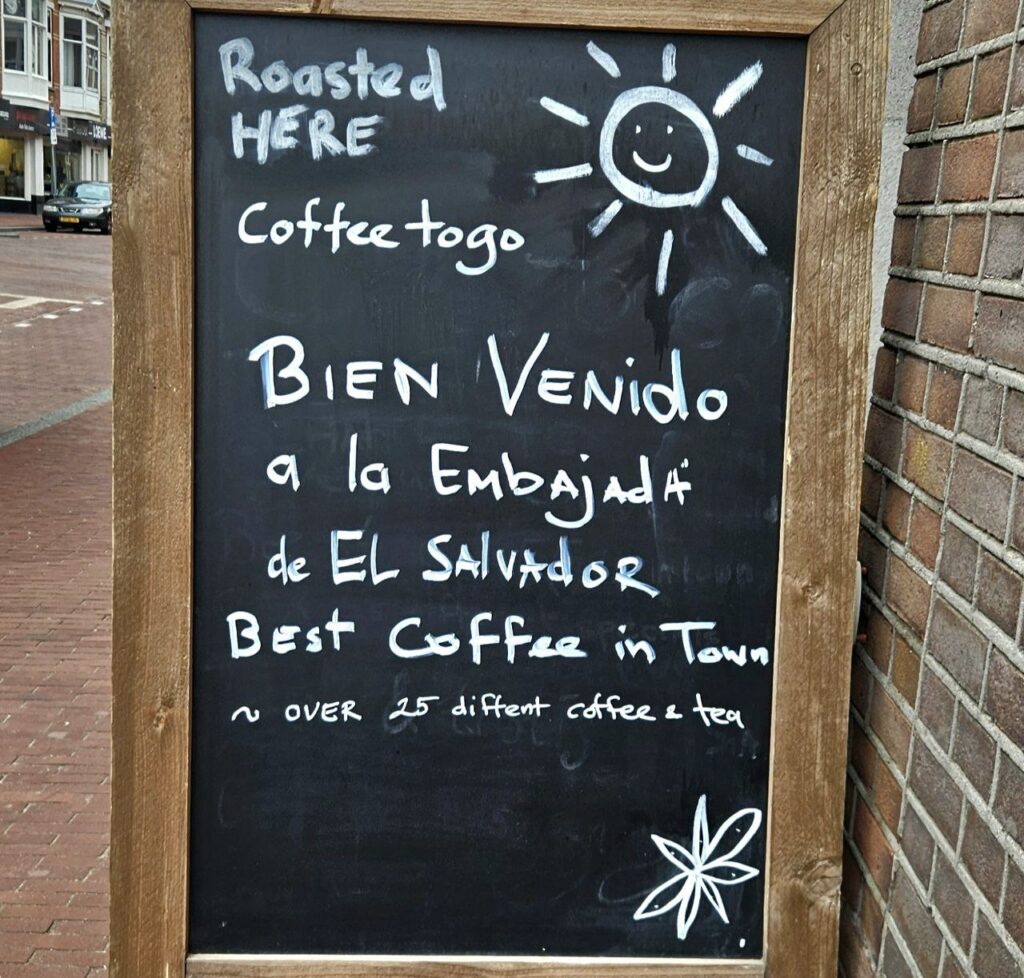 Roasted
HERE
Coffee to go
BIEN VENIdo
a la EmbAjadA
de EL SAlVAdoR
BEst Coffee in Town
~ OVER 25 diffent coffee & tea
LOEWE